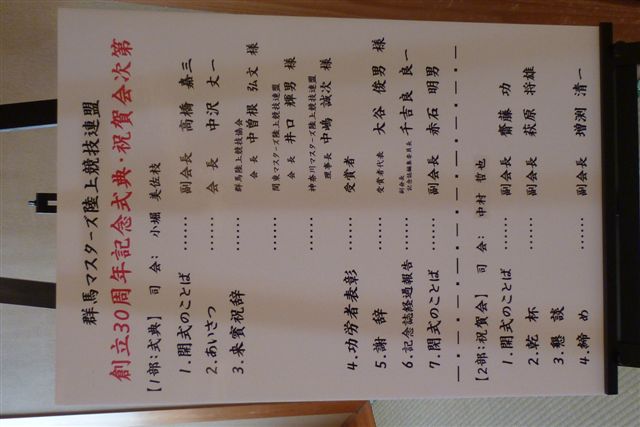 群馬マスターズ陸上競技連盟
創立30周年記念式典・祝賀会次第
【1部:式典】 司 会: 小堀 美佐枝
1.開式のことば …… 副会長 高橋 嘉三
2.あいさつ …… 会 長 中沢 丈一
3.来賓祝辞 …… 群馬陸上競技協会
会 長 中曽根 弘文 様
関東マスターズ陸上競技連盟
会 長 井口 輝男 様
神奈川マスターズ陸上競技連盟
理事長 中嶋 誠次 様
4.功労者表彰 …… 受賞者
5.謝 辞 …… 受賞者代表 大谷 俊男 様
6.記念誌経過報告 …… 副会長 記念誌編集委員長 千吉良 良一
7.閉式のことば …… 副会長 赤石 明男
【2部:祝賀会】 司 会: 中村 哲也
1.開式のことば …… 副会長 齋藤 功
2.乾 杯 …… 副会長 萩原 将雄
3.懇 談
4.締 め …… 副会長 増渕 清一